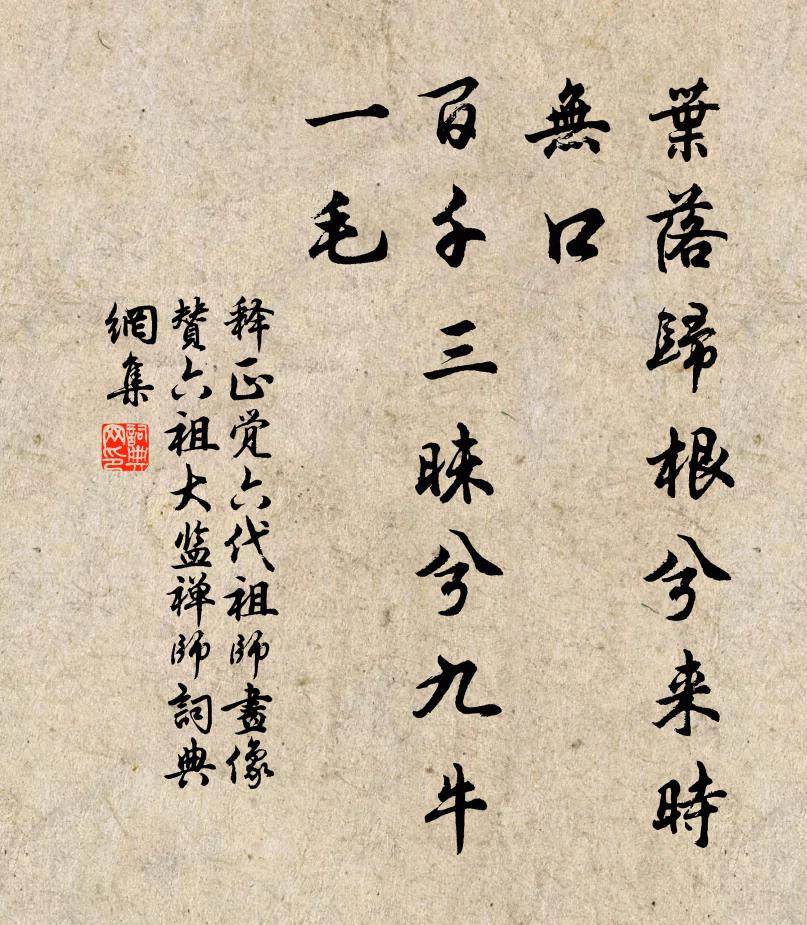 葉落歸根兮来時
無口
百千三昧兮九牛
一毛
释正覚六代祖師畫像
賛六祖大监禅師詞典
網集
詞典
网印